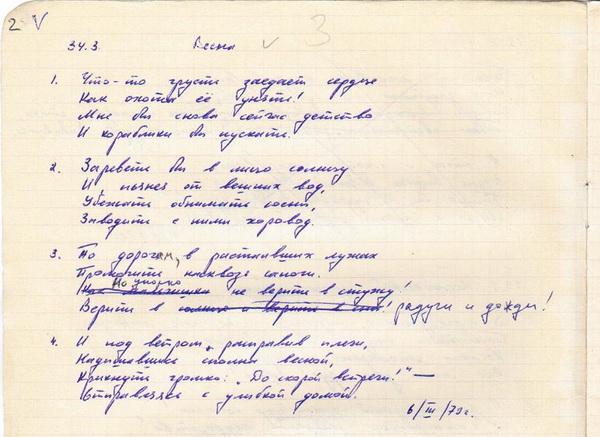 2 V
34.3. Весна v 3
1. Что-то грусть заедает сердце
Как охота её унять!
Мне бы снова сейчас детство
И кораблики бы пускать.
2. Зареветь бы в лицо солнцу
И, пьянея от вешних вод,
Убежать обнимать сосны,
Заводить с ними хоровод.
3. По дорогам, в растаявших лужах
Промочить насквозь сапоги.
Но упорно не верить в стужу!
Верить в радуги и дожди!
4. И под ветром, расправив плечи,
Надышавшись сполна весной,
Крикнуть громко: „До скорой встречи!" —
Отправляясь с улыбкой домой.
6/III/79г.